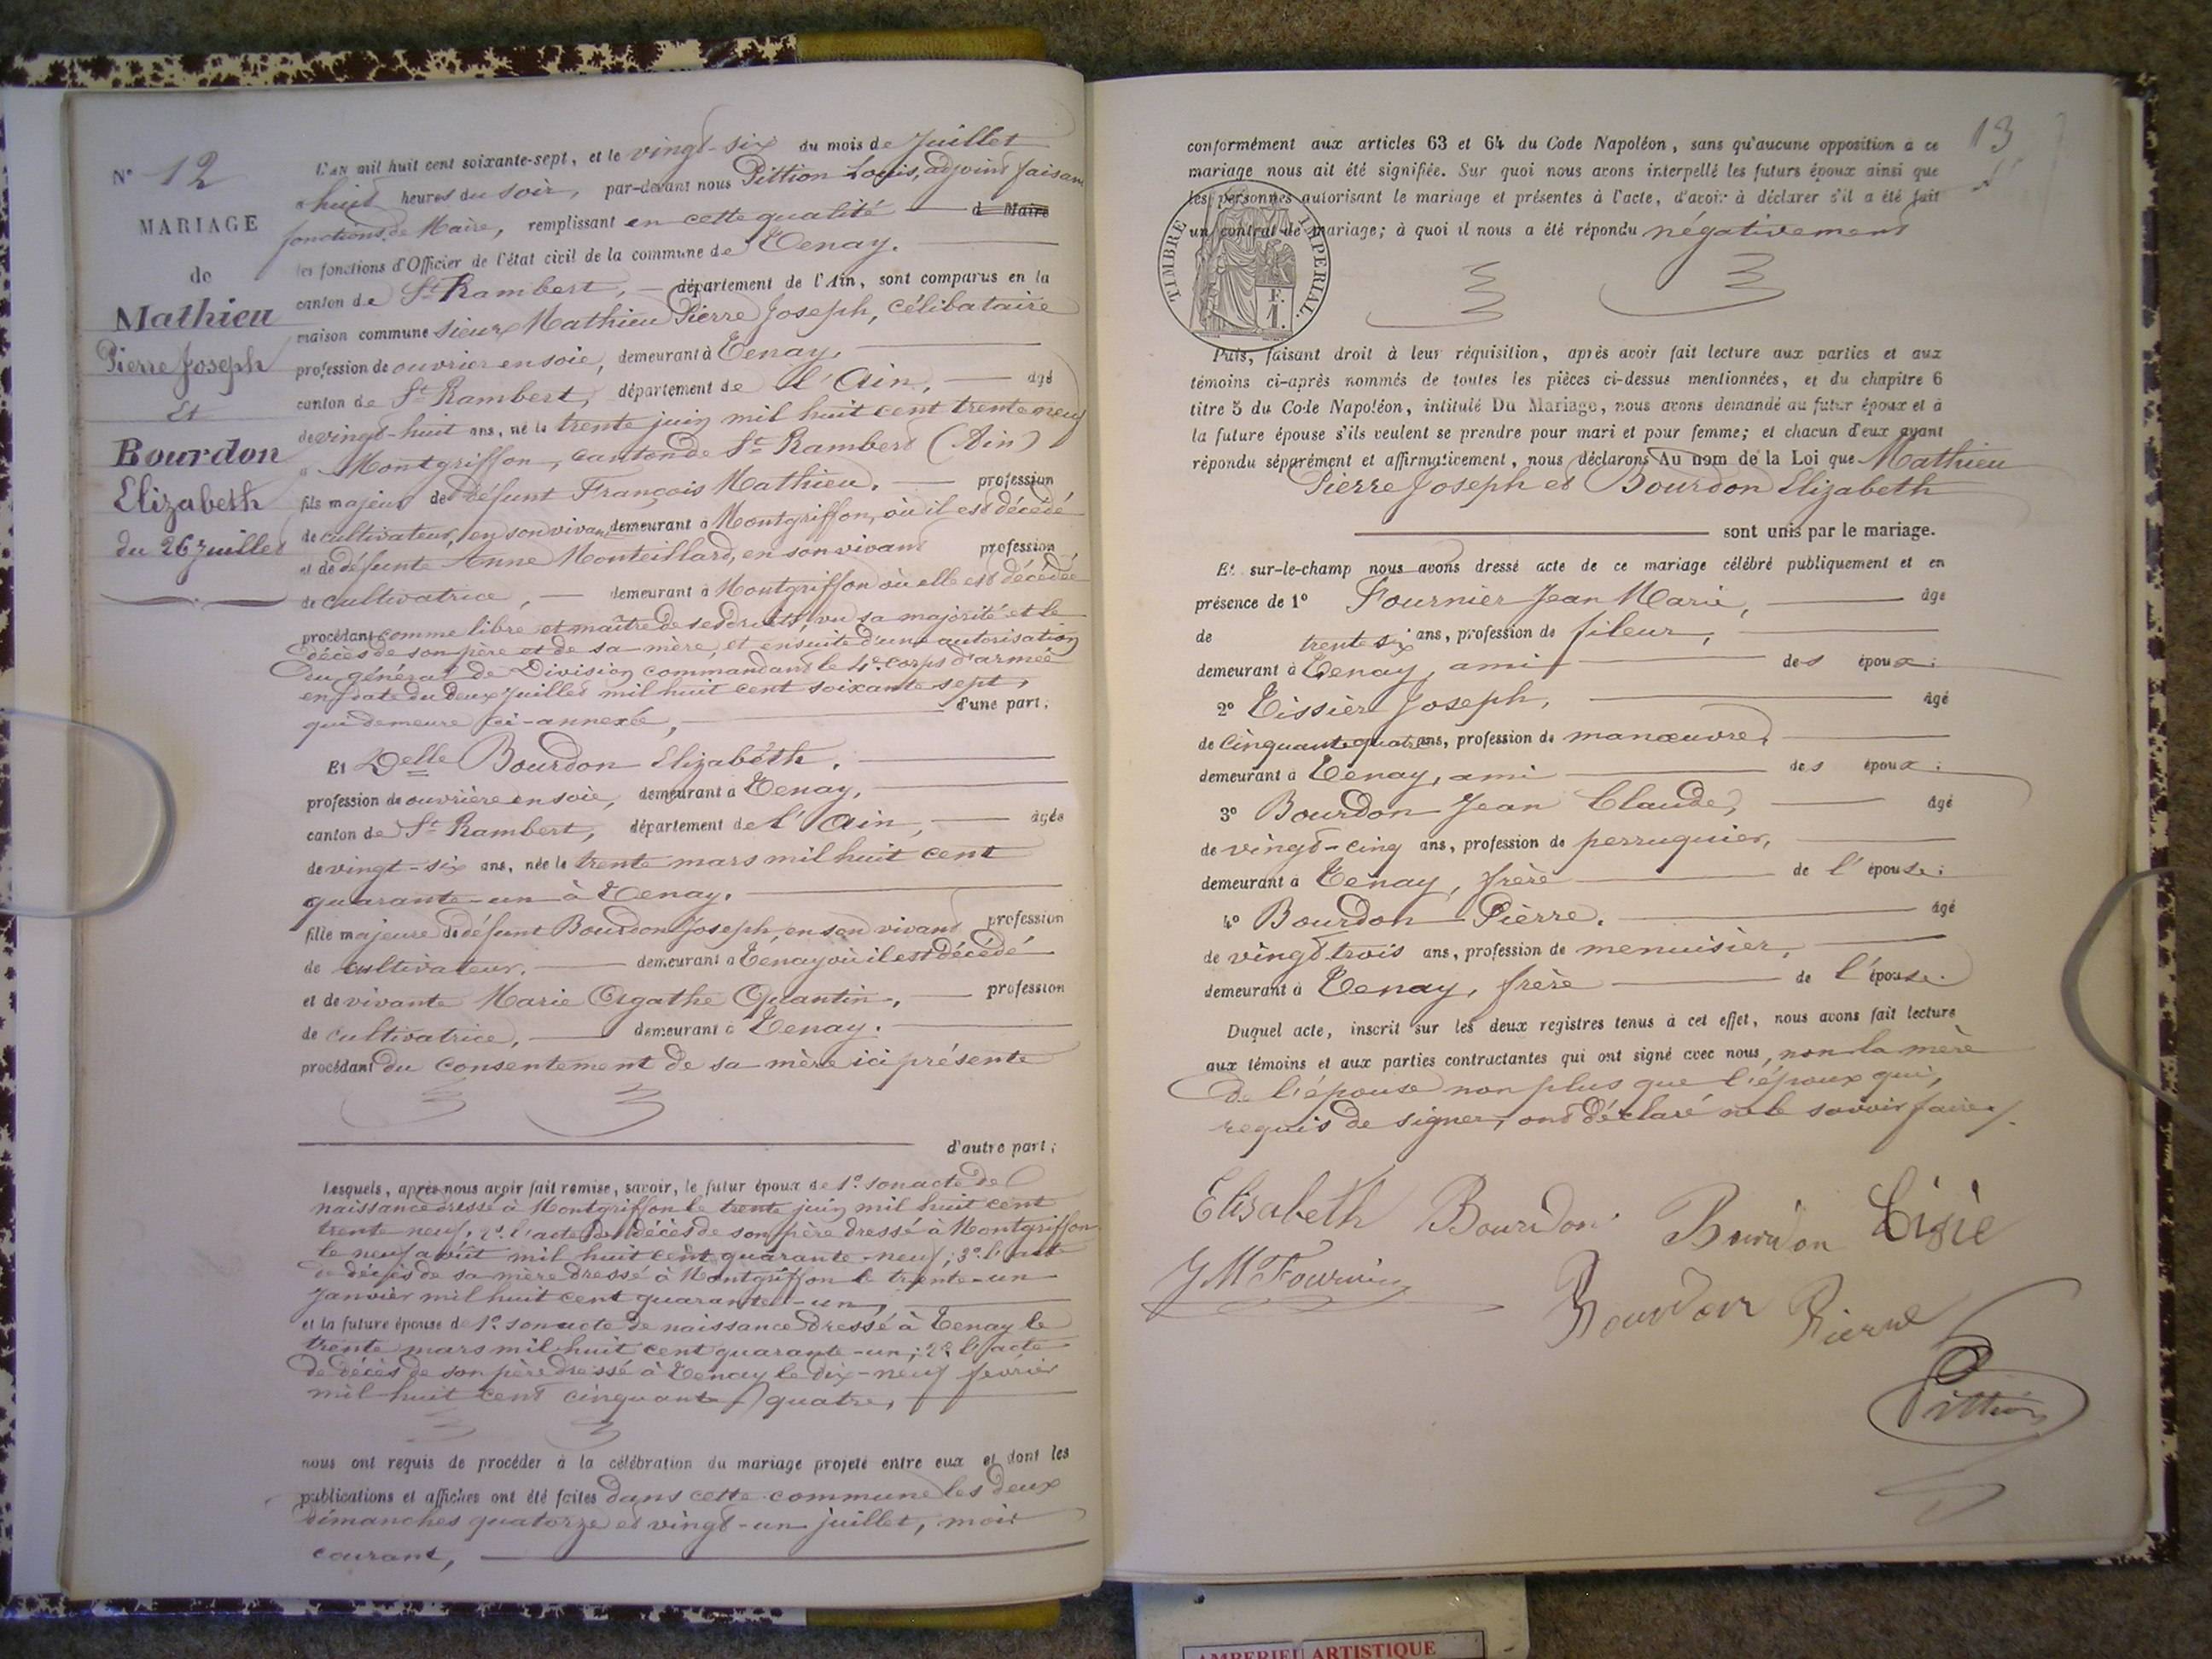 N° 12
MARIAGE
de
Mathieu
Pierre Joseph
Et
Bourdon
Elizabeth
du 26 Juillet
L'an mil huit cent soixante-sept, et le vingt-six du mois de Juillet
à huit heures du soir, par-devant nous Pittion Louis, adjoint faisant
fonctions de Maire, remplissant en cette qualité d Maire
les fonctions d'Officier de l'état civil de la commune de Tenay.
canton de St Rambert, département de l'Ain, sont comparus en la
maison commune sieur Mathieu Pierre Joseph, célibataire
profession de ouvrier en soie, demeurant à Tenay,
canton de St Rambert, département de l'Ain, âgé
de vingt-huit ans, né le trente juin mil huit cent trente neuf
à Montgriffon, canton de St Rambert (Ain)
fils majeur de défunt François Mathieu. profession
de cultivateur, en son vivant demeurant à Montgriffon, où il est décédé
et de défunte Anne Monteillard, en son vivant profession
de cultivatrice, demeurant à Montgriffon où elle est décédée
procédant comme libre et maître de ses droits, vu sa majorité et le
décès de son père et de sa mère, et ensuite d'une autorisation
du général de Division commandant le 4e corps d'armée
en date du deux juillet mil huit cent soixante sept,
qui demeure ci-annexée, d'une part;
Et Delle Bourdon Elizabeth.
profession de ouvrière en soie, demeurant à Tenay,
canton de St Rambert, département de l'Ain, âgée
de vingt-six ans, née le trente mars mil huit cent
quarante-un à Tenay.
fille majeure de défunt Bourdon Joseph, en son vivant profession
de cultivateur. demeurant à Tenay où il est décédé
et de vivante Marie Agathe Quantin, profession
de cultivatrice, demeurant à Tenay.
procédant du consentement de sa mère ici présente
d'autre part;
Lesquels, après nous avoir fait remise, savoir, le futur époux de 1° son acte de
naissance dressé à Montgriffon le trente juin mil huit cent
trente neuf, 2° l'acte de décès de son père dressé à Montgriffon
le neuf août mil huit cent quarante-neuf; 3° l'acte
de décès de sa mère dressé à Montgriffon le trente-un
janvier mil huit cent quarante-un,
et la future épouse de 1° son acte de naissance dressé à Tenay le
trente mars mil huit cent quarante-un; 2° l'acte
de décès de son père dressé à Tenay le dix-neuf février
mil huit cent cinquante quatre,
nous ont requis de procéder à la célébration du mariage projeté entre eux et dont les
publications et affiches ont été faites dans cette commune les deux
dimanches quatorze et vingt-un juillet, mois
courant,
13
conformément aux articles 63 et 64 du Code Napoléon, sans qu'aucune opposition à ce
mariage nous ait été signifiée. Sur quoi nous avons interpellé les futurs époux ainsi que
les personnes autorisant le mariage et présentes à l'acte, d'avoir à déclarer s'il a été fait
un contrat de mariage; à quoi il nous a été répondu négativement
TIMBRE IMPERIAL.
F.
1.
Puis, faisant droit à leur réquisition, après avoir fait lecture aux parties et aux
témoins ci-après nommés de toutes les pièces ci-dessus mentionnées, et du chapitre 6
titre 5 du Code Napoléon, intitulé Du Mariage, nous avons demandé au futur époux et à
la future épouse s'ils veulent se prendre pour mari et pour femme; et chacun d'eux ayant
répondu séparément et affirmativement, nous déclarons Au nom de la Loi que Mathieu
Pierre Joseph et Bourdon Elizabeth
sont unis par le mariage.
Et sur-le-champ nous avons dressé acte de ce mariage célébré publiquement et en
présence de 1° Fournier Jean Marie, âgé
de trente six ans, profession de fileur,
demeurant à Tenay, ami des époux;
2° Tissier Joseph, âgé
de cinquante quatre ans, profession de manœuvre,
demeurant à Tenay, ami des époux;
3° Bourdon Jean Claude, âgé
de vingt-cinq ans, profession de perruquier,
demeurant à Tenay, frère de l'épouse;
4° Bourdon Pierre. âgé
de vingt trois ans, profession de menuisier,
demeurant à Tenay, frère de l'épouse.
Duquel acte, inscrit sur les deux registres tenus à cet effet, nous avons fait lecture
aux témoins et aux parties contractantes qui ont signé avec nous, non la mère
de l'épouse non plus que l'époux qui,
requis de signer, ont déclaré ne le savoir faire.
Elisabeth Bourdon Bourdon Tisié
JM Fournier Bourdon Pierre
Pittion
AMBERIEU ARTISTIQUE